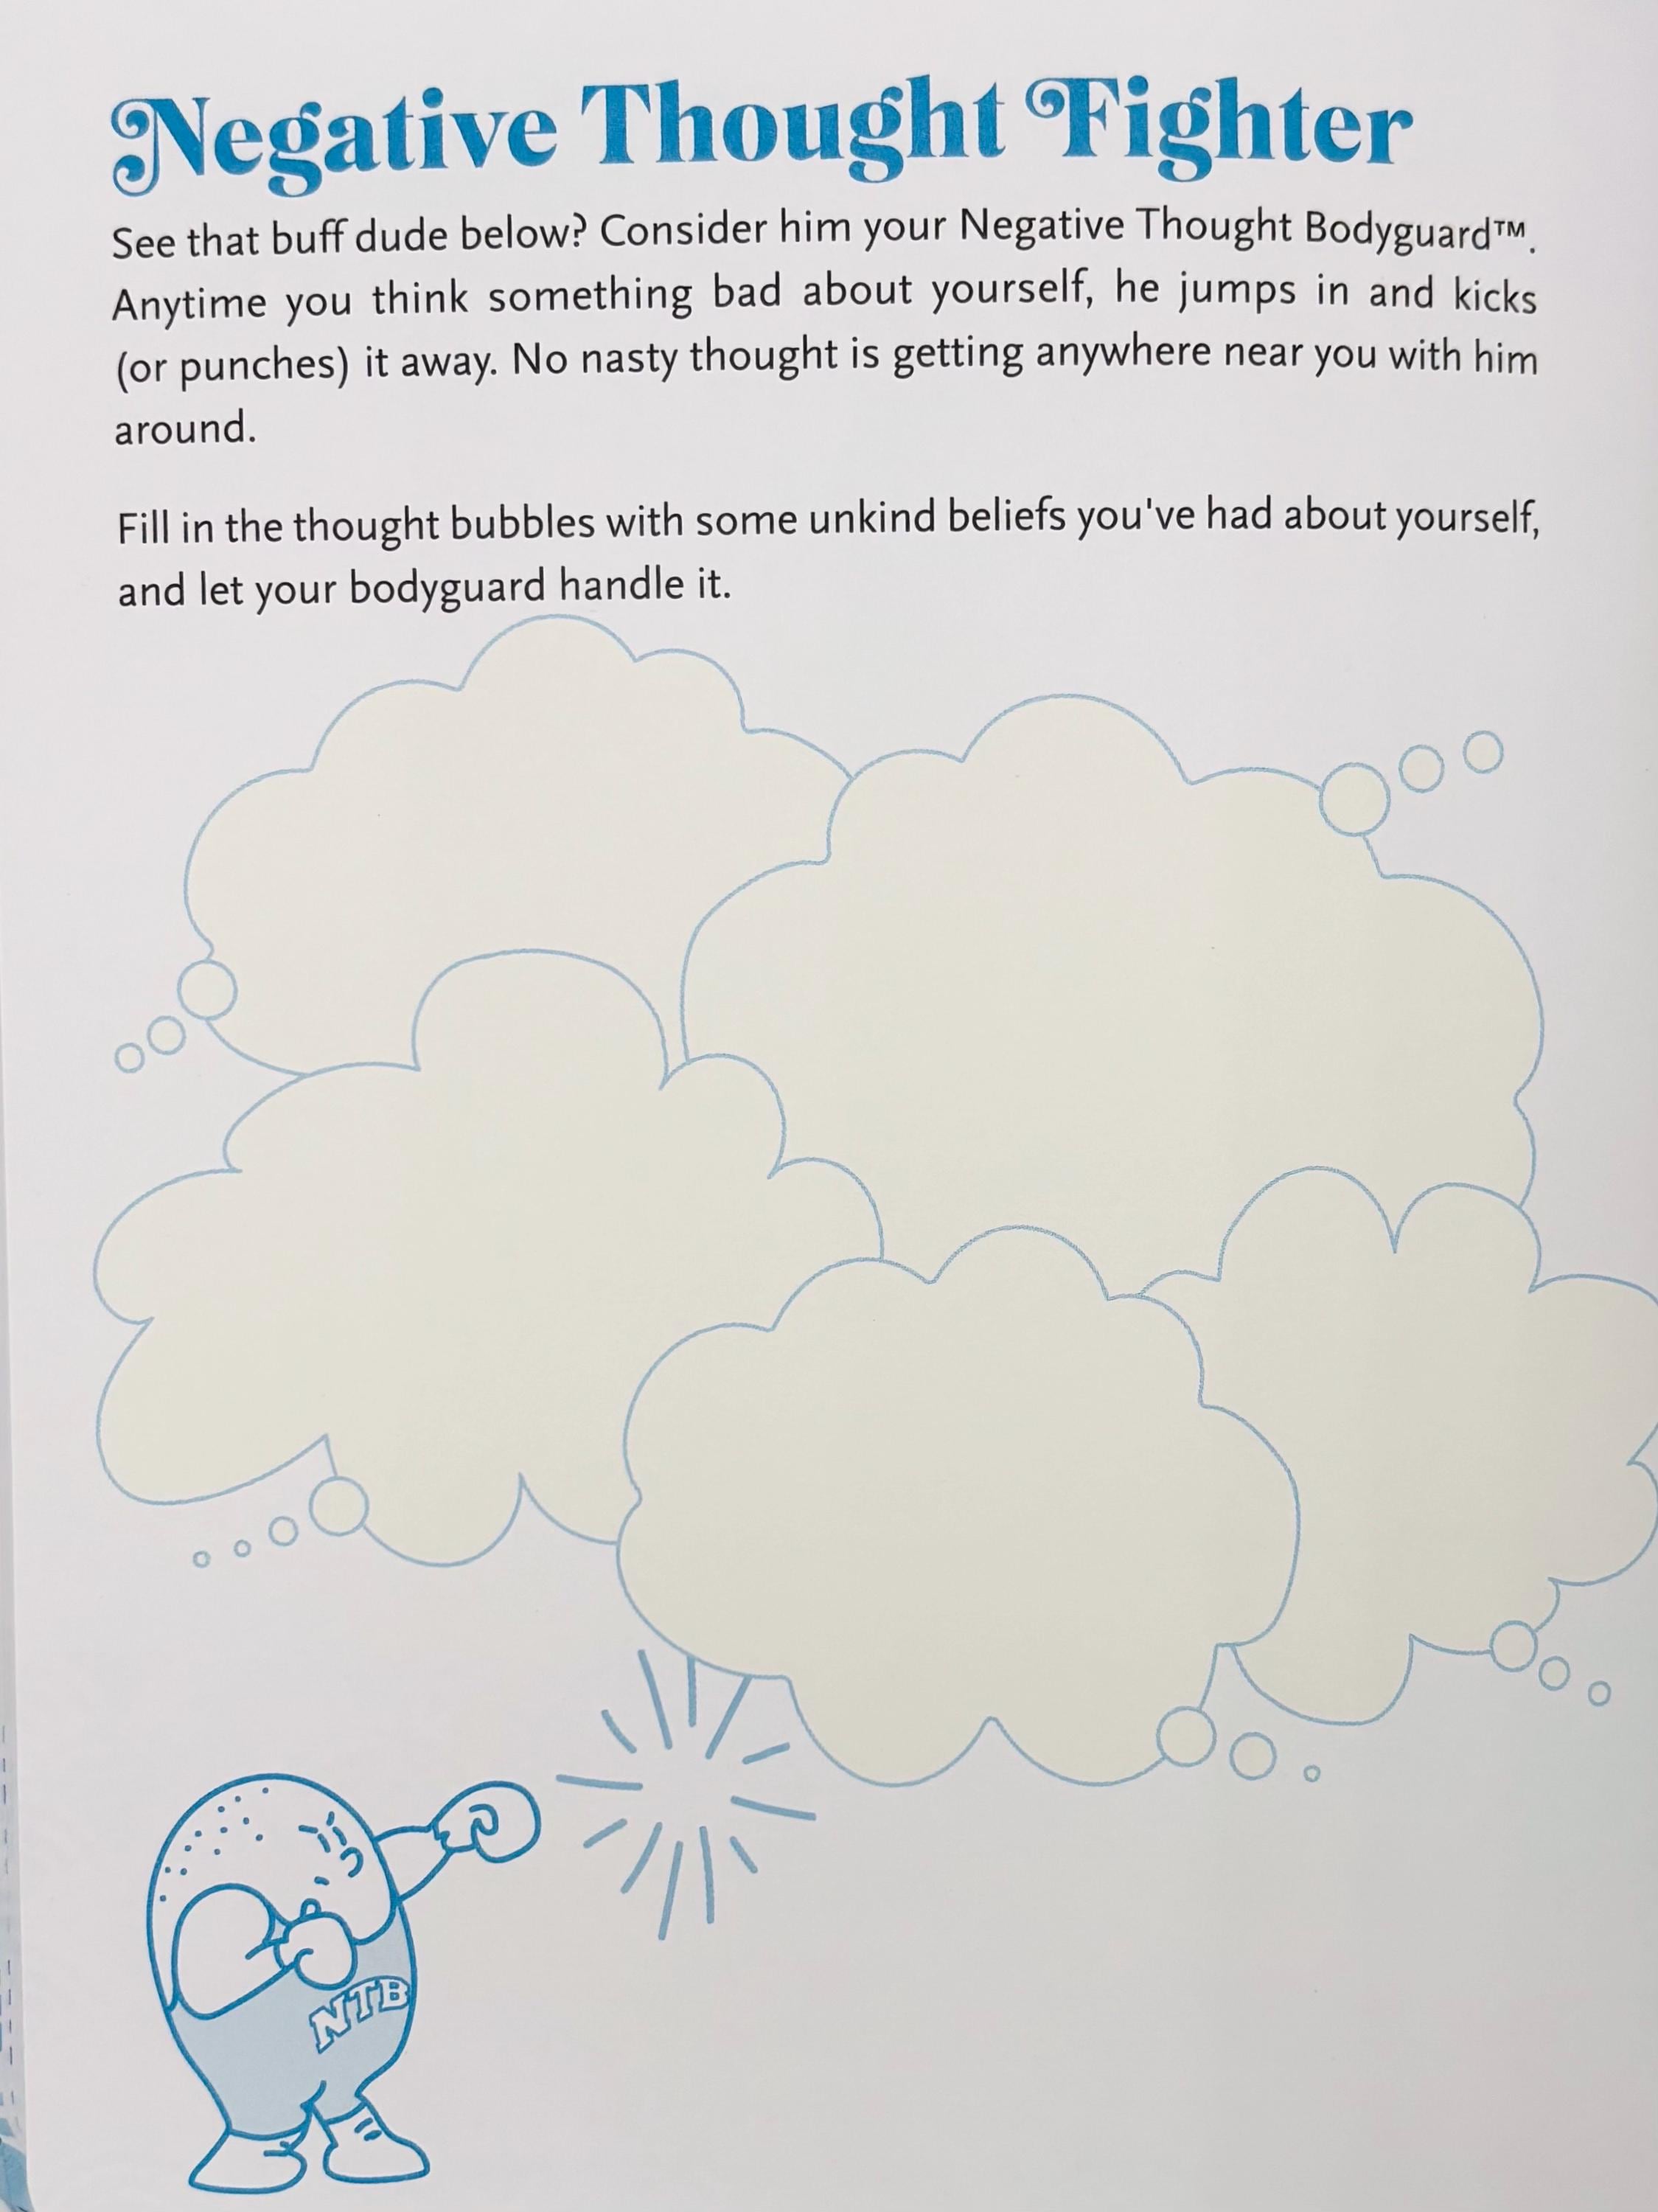 Negative Thought Fighter
See that buff dude below? Consider him your Negative Thought Bodyguard™.
Anytime you think something bad about yourself, he jumps in and kicks
(or punches) it away. No nasty thought is getting anywhere near you with him
around.
Fill in the thought bubbles with some unkind beliefs you've had about yourself,
and let your bodyguard handle it.
NTB